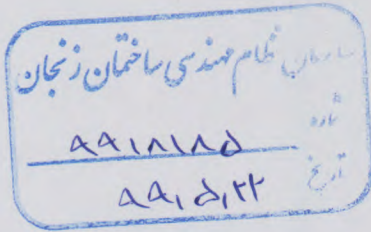 سازمان نظام مهندسی ساختمان زنجان
شماره ۹۹/۸۱۸۵
تاریخ ۹۹/۵/۲۲